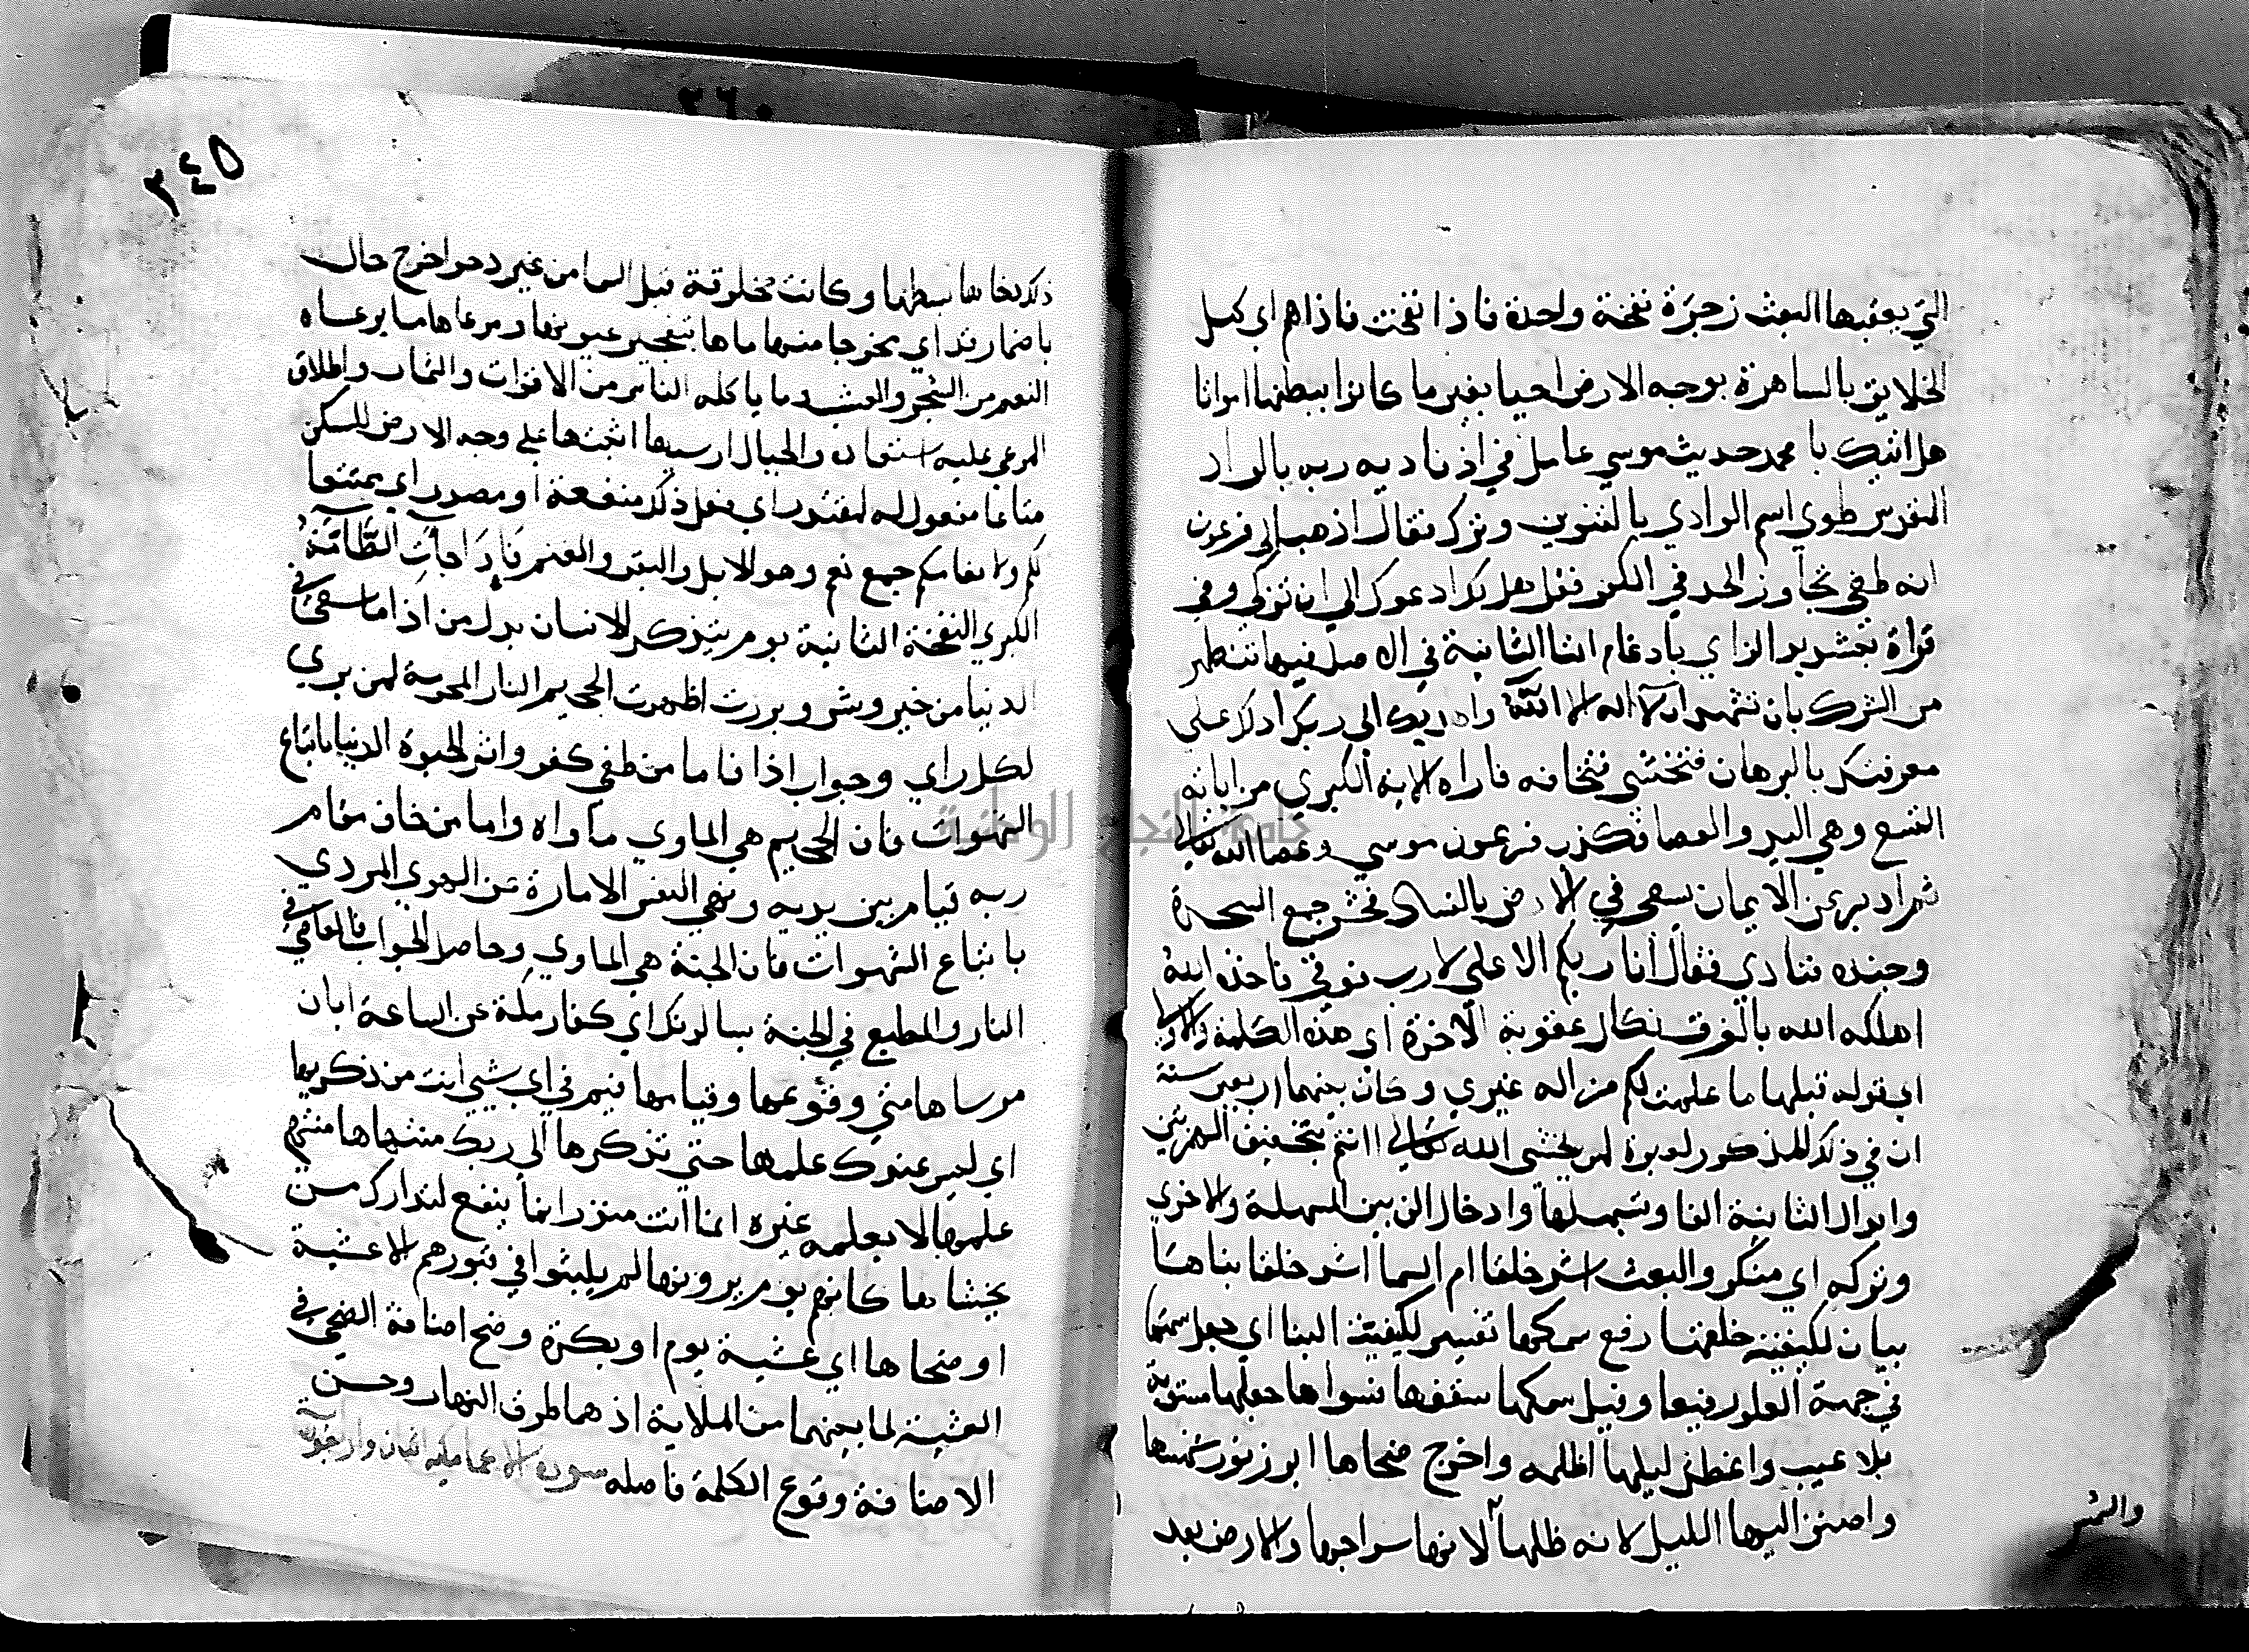 التي يعقبها البعث زجرة نفخة واحدة فاذا نفخت فاذاهم اي كل
الخلايق بالساهرة بوجه الارض احيا بعد ما كانوا ببطنها امواتا
هل اتيك يا محمد حديث موسي عامل في اذ ناديه ربه بالواد
المقدس طوي اسم الوادي بالتنوين وتركه فقال اذهب الي فرعون
انه طغي تجاوز الحد في الكفر فقل هل لك ادعوك الي ان تزكي وفي
قراة بتشديد الزاي بادغام التا الثانية في الاصل فيها تتطهر
من الشرك بان تشهد ان لا اله الا الله واهديك الي ربك ادلك علي
معرفتك بالبرهان فتخشي فتخافه فاراه الاية الكبري من اياته
التسع وهي اليد والعصا فكذب فرعون موسي وعصا الله تعالي
ثم ادبر عن الايمان يسعي في الارض بالفساد فحشر جمع السحرة
وجنده فنادي فقال انا ربكم الاعلي لا رب فوقي فاخذه الله
اهلكه الله بالغرق نكال عقوبة الاخرة اي هذه الكلمة والاولي
اي قوله قبلها ما علمت لكم من اله غيري وكان بينهما اربعين سنة
ان في ذلك المذكور لعبرة لمن يخشي الله تعالي اانتم بتحقيق الهمزتين
وابدال الثانية الفا وتسهيلها وادخال الف بين المسهلة والاخري
وتركه اي منكروا البعث اشد خلقا ام السما اشد خلقا بناها
بيان لكيفية خلقها رفع سمكها تفسير لكيفية البنا اي جعل سمتها
في جهة العلو رفيعا وقيل سمكها سقفها فسواها جعلها مستوية
بلا عيب واغطش ليلها اظلمه واخرج ضحاها ابرز نور شمسها
واضيف اليها الليل لانه ظلها لانها سراجها والارض بعد
والشمس
٢٤٥
ذلك دحاها بسطها وكانت مخلوقة قبل السما من غير دحو اخرج حال
باضمار قد اي مخرجا منها ماها بتفجير عيونها ومرعاها ما يرعاه
النعم من الشجر والعشب وما ياكله الناس من الاقوات والثمار واطلاق
المرعي عليه استعارة والجبال ارسيها اثبتها علي وجه الارض لتسكن
متاعا مفعول له لمقدر اي فعل ذلك منفعة او مصدر اي تمتيعا
لكم ولانعامكم جمع نعم وهو الابل والبقر والغنم فاذا جات الطامة
الكبري النفخة الثانية يوم يتذكر الانسان بدل من اذا ما سعي في
الدنيا من خير وشر وبرزت اظهرت الجحيم النار المحرقة لمن يري
لكل راي وجواب اذا فاما من طغي كفر واثر الحيوة الدنيا باتباع
الشهوات فان الجحيم هي الماوي ماواه واما من خاف مقام
ربه قيامه بين يديه ونهي النفس الامارة عن الهوي المردي
باتباع الشهوات فان الجنة هي الماوي وحاصل الجواب فالعاصي في
النار والمطيع في الجنة يسالونك اي كفار مكة عن الساعة ايان
مرساها متي وقوعها وقيامها فيم في اي شيئ انت من ذكريها
اي ليس عندك علمها حتي تذكرها الي ربك منتهاها منتهي
علمها لا يعلمه غيره انما انت منذر انما ينفع انذارك من
يخشاها كانهم يوم يرونها لم يلبثوا في قبورهم الا عشية
او ضحاها اي عشية يوم او بكرة وصح اضافة الضحي في
العشية لما بينهما من الملابة اذ هما طرف النهار وحسن
الاضافة وقوع الكلمة فاصله سورة الاعما مكية اثنان واربعون اية
جامعة النجاح الوطنية